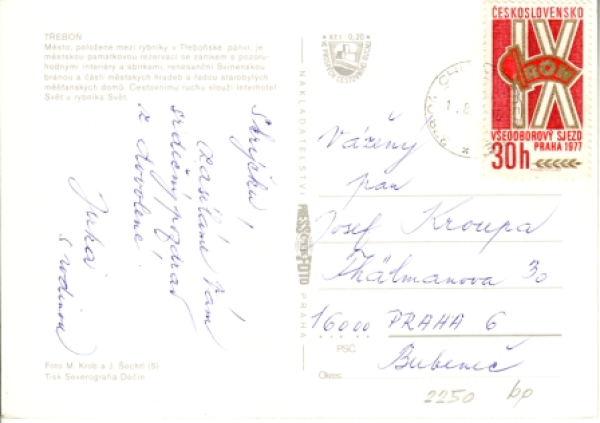 TŘEBOŇ
Město, položené mezi rybníky v Třeboňské pánvi, je
městskou památkovou rezervací se zámkem a pozoru-
hodnými interiéry a sbírkami, renesanční Svinenskou
bránou a částí městských hradeb a řadou starobylých
měšťanských domů. Cestovnímu ruchu slouží Interhotel
Svět u rybníka Svět.
Strýčku!
Zasíláme Vám
srdečný pozdrav
z dovolené.
Jirka
s rodinou
Foto M. Krob a J. Šechtl (5)
Tisk Severografia Děčín
NAKLADATELSTVÍ
PRESSFOTO
PRAHA
651 0,30
ČESKOSLOVENSKO
IX
ROH
VŠEODBOROVÝ SJEZD
PRAHA 1977
30h
Vážený
pan
Josef Kroupa
Thälmanova 30
16000 PRAHA 6
PSČ
Bubeneč
Okres
2250 bp